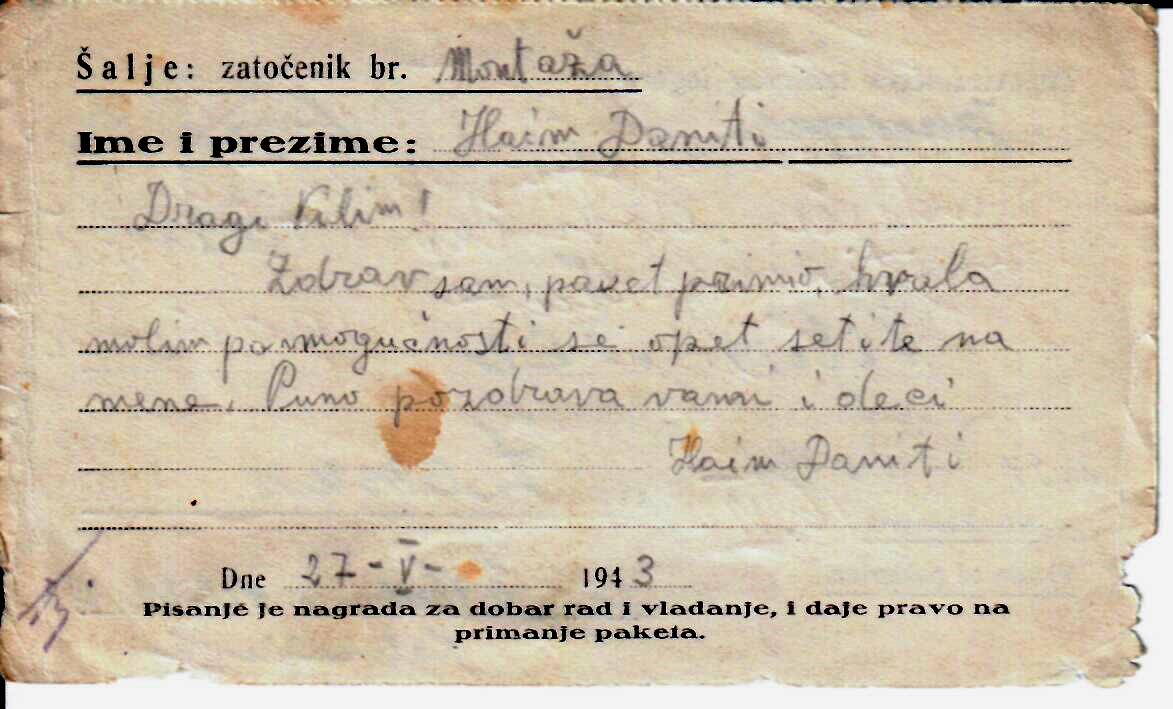 Šalje: zatočenik br. Montaža
Ime i prezime: Haim Daniti
Dragi Vilim!
Zdrav sam, paket primio, hvala
molim po mogućnosti se opet setite na
mene. Puno pozdrava vama i deci
Haim Daniti
Dne 27-V- 1943
Pisanje je nagrada za dobar rad i vladanje, i daje pravo na
primanje paketa.